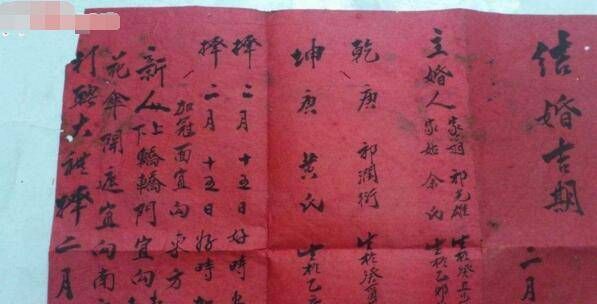 结婚吉期
二月
主婚人
家翁 光雄 生於癸
家姑 余氏 生於乙卯
乾庚 潤衍 生於癸
坤庚 黄氏 生於乙
擇二月十五日好時
擇二月十五日好時
加冠面宜向東方
新人上下轎轎門宜向
花傘開遮宜向南
行聘大礼擇二月